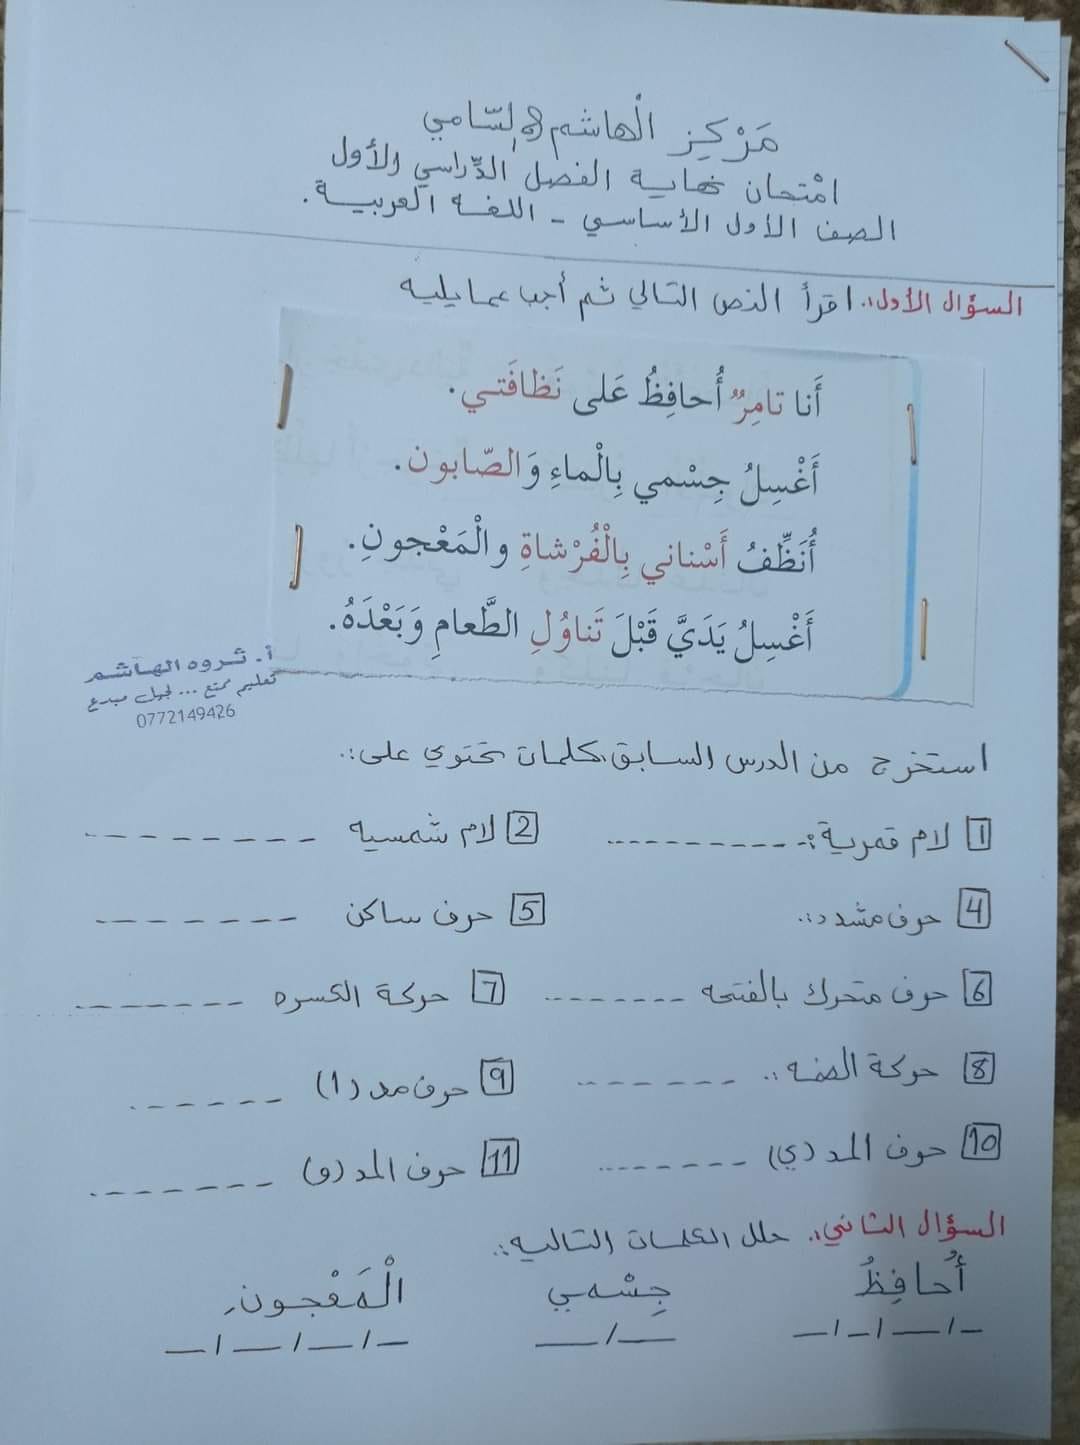 مَرْكِز الْهاشم السّامي
امْتحان نهاية الفصل الدِّراسي الأول
الصف الأول الأساسي - اللغة العربية.
السؤال الأول:. اقرأ النص التالي ثم أجب عما يليه
أَنا تامِرٌ أُحافِظُ عَلى نَظافَتي.
أَغْسِلُ جِسْمي بِالْماءِ وَالصّابون.
أُنَظِّفُ أَسْناني بِالْفُرْشاةِ والْمَعْجونِ.
أَغْسِلُ يَدَيَّ قَبْلَ تَناوُلِ الطَّعامِ وَبَعْدَهُ.
أ. ثروه الهاشم
تعليم ممتع ... لجيل مبدع
0772149426
استخرج من الدرس السابق كلمات تحتوي على:.
1 لام قمرية:- ---------- 2 لام شمسيه --------
4 حرف مشدد:. 5 حرف ساكن -------
6 حرف متحرك بالفتحه ------- 7 حركة الكسره -------
8 حركة الضمه:. ------ 9 حرف مد (ا) ------
10 حرف المد (ي) ------- 11 حرف المد (و) -------
السؤال الثاني:. حلل الكلمات التاليه:.
أُحافِظُ جِسْمي الْمَعْجونِ
—/—/—/— —/— —/—/—/—